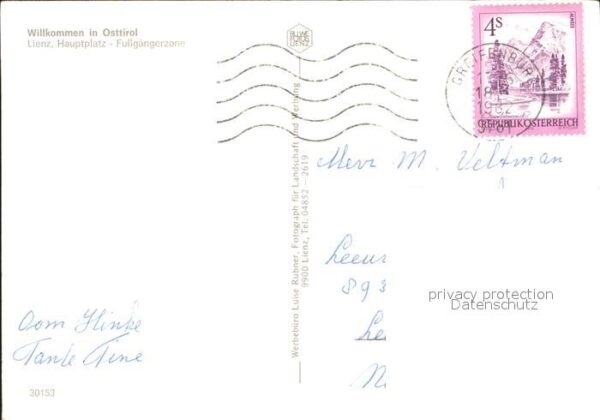 Willkommen in Osttirol
Lienz, Hauptplatz - Fußgängerzone
LIENZ
4S
REPUBLIK ÖSTERREICH
GREIFENBURG
18
9761
M. Veltman
Werbebüro Luise Rubner, Fotograph für Landschaft und Werbung
9900 Lienz, Tel. 04852 - 2619
Leeu
893
Le
N
privacy protection
Datenschutz
Oom Hinke
Tante Tine
30153